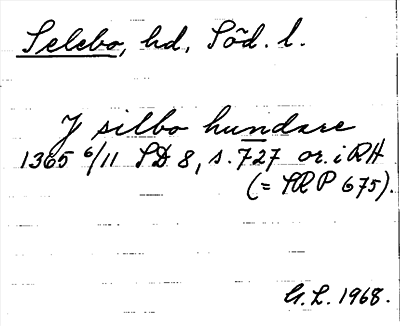 Selebo, hd, Söd. l.
J silbo hundare
1365 6/11 SD 8, s. 727 or. i RA
(= SRP 675).
G. L. 1968.